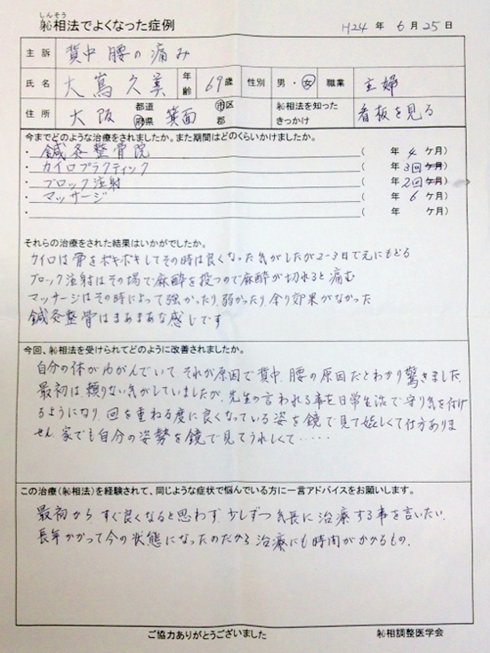 しんそう
㊙相法でよくなった症例
H24年 6月 25日
主訴 背中 腰の痛み
氏名 大嶌久美 年齢 69歳 性別 男・女 職業 主婦
住所 大阪 都道府県 箕面 市区郡 相法を知ったきっかけ 看板を見る
今までどのような治療をされましたか。また期間はどのくらいかけましたか。
・鍼灸整骨院 ( 年 4 ケ月)
・カイロプラクティック ( 年 3回 ケ月)
・ブロック注射 ( 年 2回 ケ月)
・マッサージ ( 年 6 ケ月)
・ ( 年 ケ月)
それらの治療をされた結果はいかがでしたか。
カイロは骨をボキボキしてその時は良くなった気がしたが2-3日で元にもどる
ブロック注射はその場で麻酔を投つので麻酔が切れると痛む
マッサージはその時によって強かったり、弱かったり、余り効果がなかった
鍼灸整骨はまあまあな感じです
今回、相法を受けられてどのように改善されましたか。
自分の体がゆがんでいて それが原因で背中、腰の原因だとわかり驚きました。
最初は、頼りない気がしていましたが、先生の言われる事を日常生活で守り気を付け
るようになり 回を重ねる度に良くなっている姿を鏡で見て嬉しくて仕方ありま
せん。家でも自分の姿勢を鏡で見てうれしくて・・・・・
この治療(相法)を経験されて、同じような症状で悩んでいる方に一言アドバイスをお願いします。
最初から すぐ良くなると思わず 少しずつ気長に治療する事を言いたい。
長年かかって今の状態になったのだから 治療にも時間がかかるもの。
ご協力ありがとうございました
相調整医学会